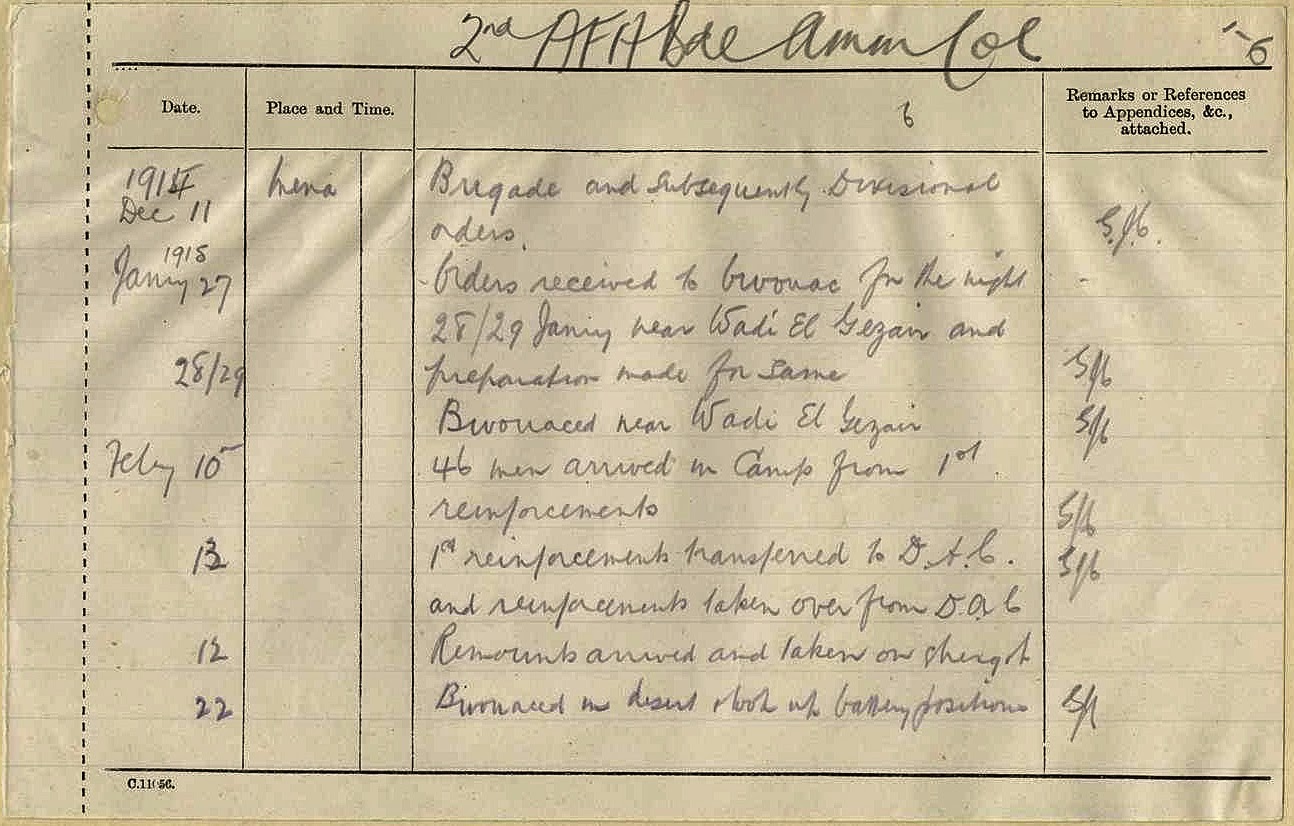 2nd AFA Bde Amm Col 1-6
Date. Place and Time. 6 Remarks or References to Appendices, &c., attached.
1914 Mena Brigade and subsequently Divisional
Dec 11 orders. S/6.
1915
Janry 27 Orders received to bivouac for the night -
28/29 Janry near Wadi El Gezair and
28/29 preparation made for same S/6
Bivouaced near Wadi El Gezair S/6
Feby 10 46 men arrived in Camp from 1st
reinforcements S/6
12 1st reinforcements transferred to D.A.C. S/6
and reinforcements taken over from D.A.C
12 Remounts arrived and taken on
22 Bivouaced in desert & took up battery positions